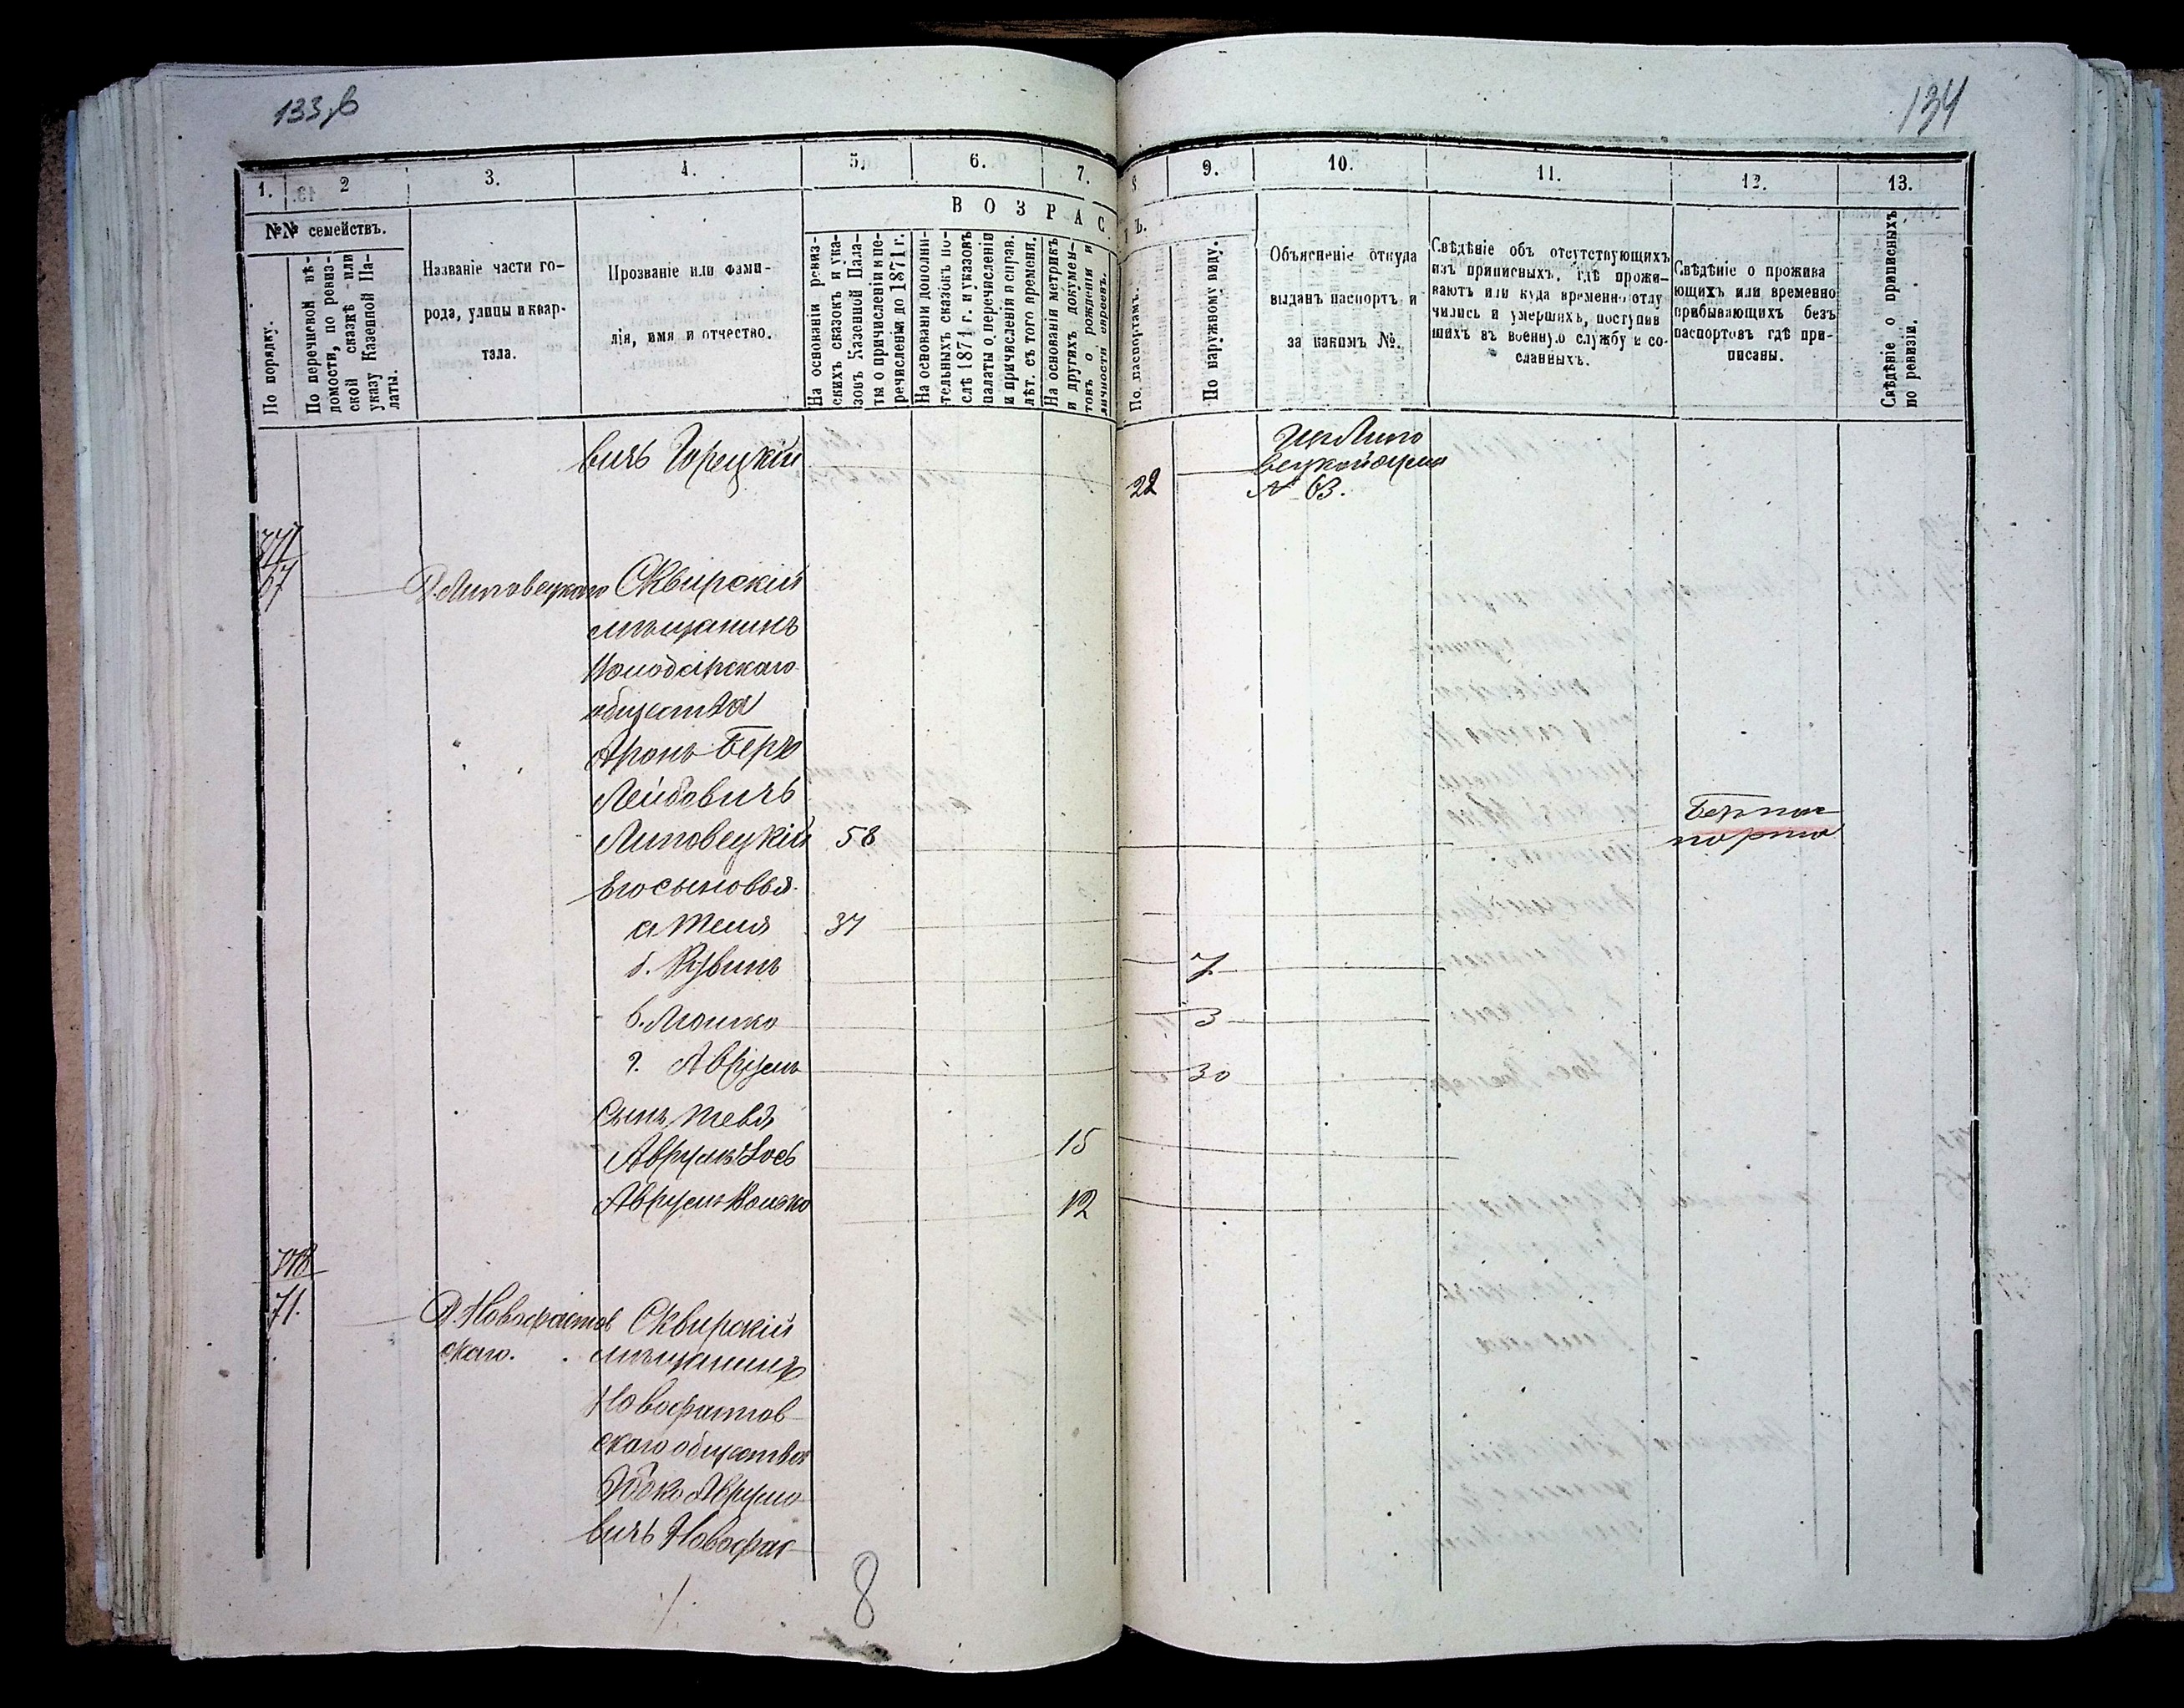 133 об
134
1.
2
3.
4.
5.
6.
7.
8
9.
10.
11.
12.
13.
№№ семействъ.
По порядку.
По перечневой вѣ-
домости, по ревиз-
ской сказкѣ или
указу Казенной Па-
латы.
Названіе части го-
рода, улицы и квар-
тала.
Прозваніе или фами-
лія, имя и отчество.
ВОЗРАС
ТЪ.
На основаніи ревиз-
скихъ сказокъ и ука-
зовъ Казенной Пала-
ты о причисленіи и пе-
речисленіи до 1871 г.
На основаніи дополни-
тельныхъ сказокъ по-
слѣ 1871 г. и указовъ
палаты о перечисленіи
и причисленія и справ.
лѣт. съ того времени.
На основаніи метрикъ
и другихъ докумен-
товъ о рожденіи и
личности евреевъ.
По паспортамъ.
По наружному виду.
Объясненіе откуда
выданъ паспортъ и
за какимъ №.
Свѣдѣніе объ отсутствующихъ
изъ приписныхъ, гдѣ прожи-
ваютъ или куда временно отлу
чились и умершихъ, поступив
шихъ въ военную службу и со-
сланныхъ.
Свѣдѣніе о прожива
ющихъ или временно
прибывающихъ безъ
паспортовъ гдѣ при-
писаны.
Свѣдѣніе о приписныхъ
по ревизіи.
вичъ Горецкій
22
Липо
вецкой
№ 63.
67
Д. Липовецкаго Сквирскій
мѣщанинъ
Володарскаго
общества
Аронъ Берко
Лейбовичъ
Липовецкій 58
Без пас
порта
Его сыновья
а 37
б. Рувинъ 7
в. Мошко 3
г. Аврумъ 30
Сынъ
Аврумъ Іось 15
Аврумъ Волько 12
718
71.
Д. Новофастов Сквирскій
скаго. мѣщанинъ
Новофастов
скаго общества
Аврумо
вичъ Новофас
8